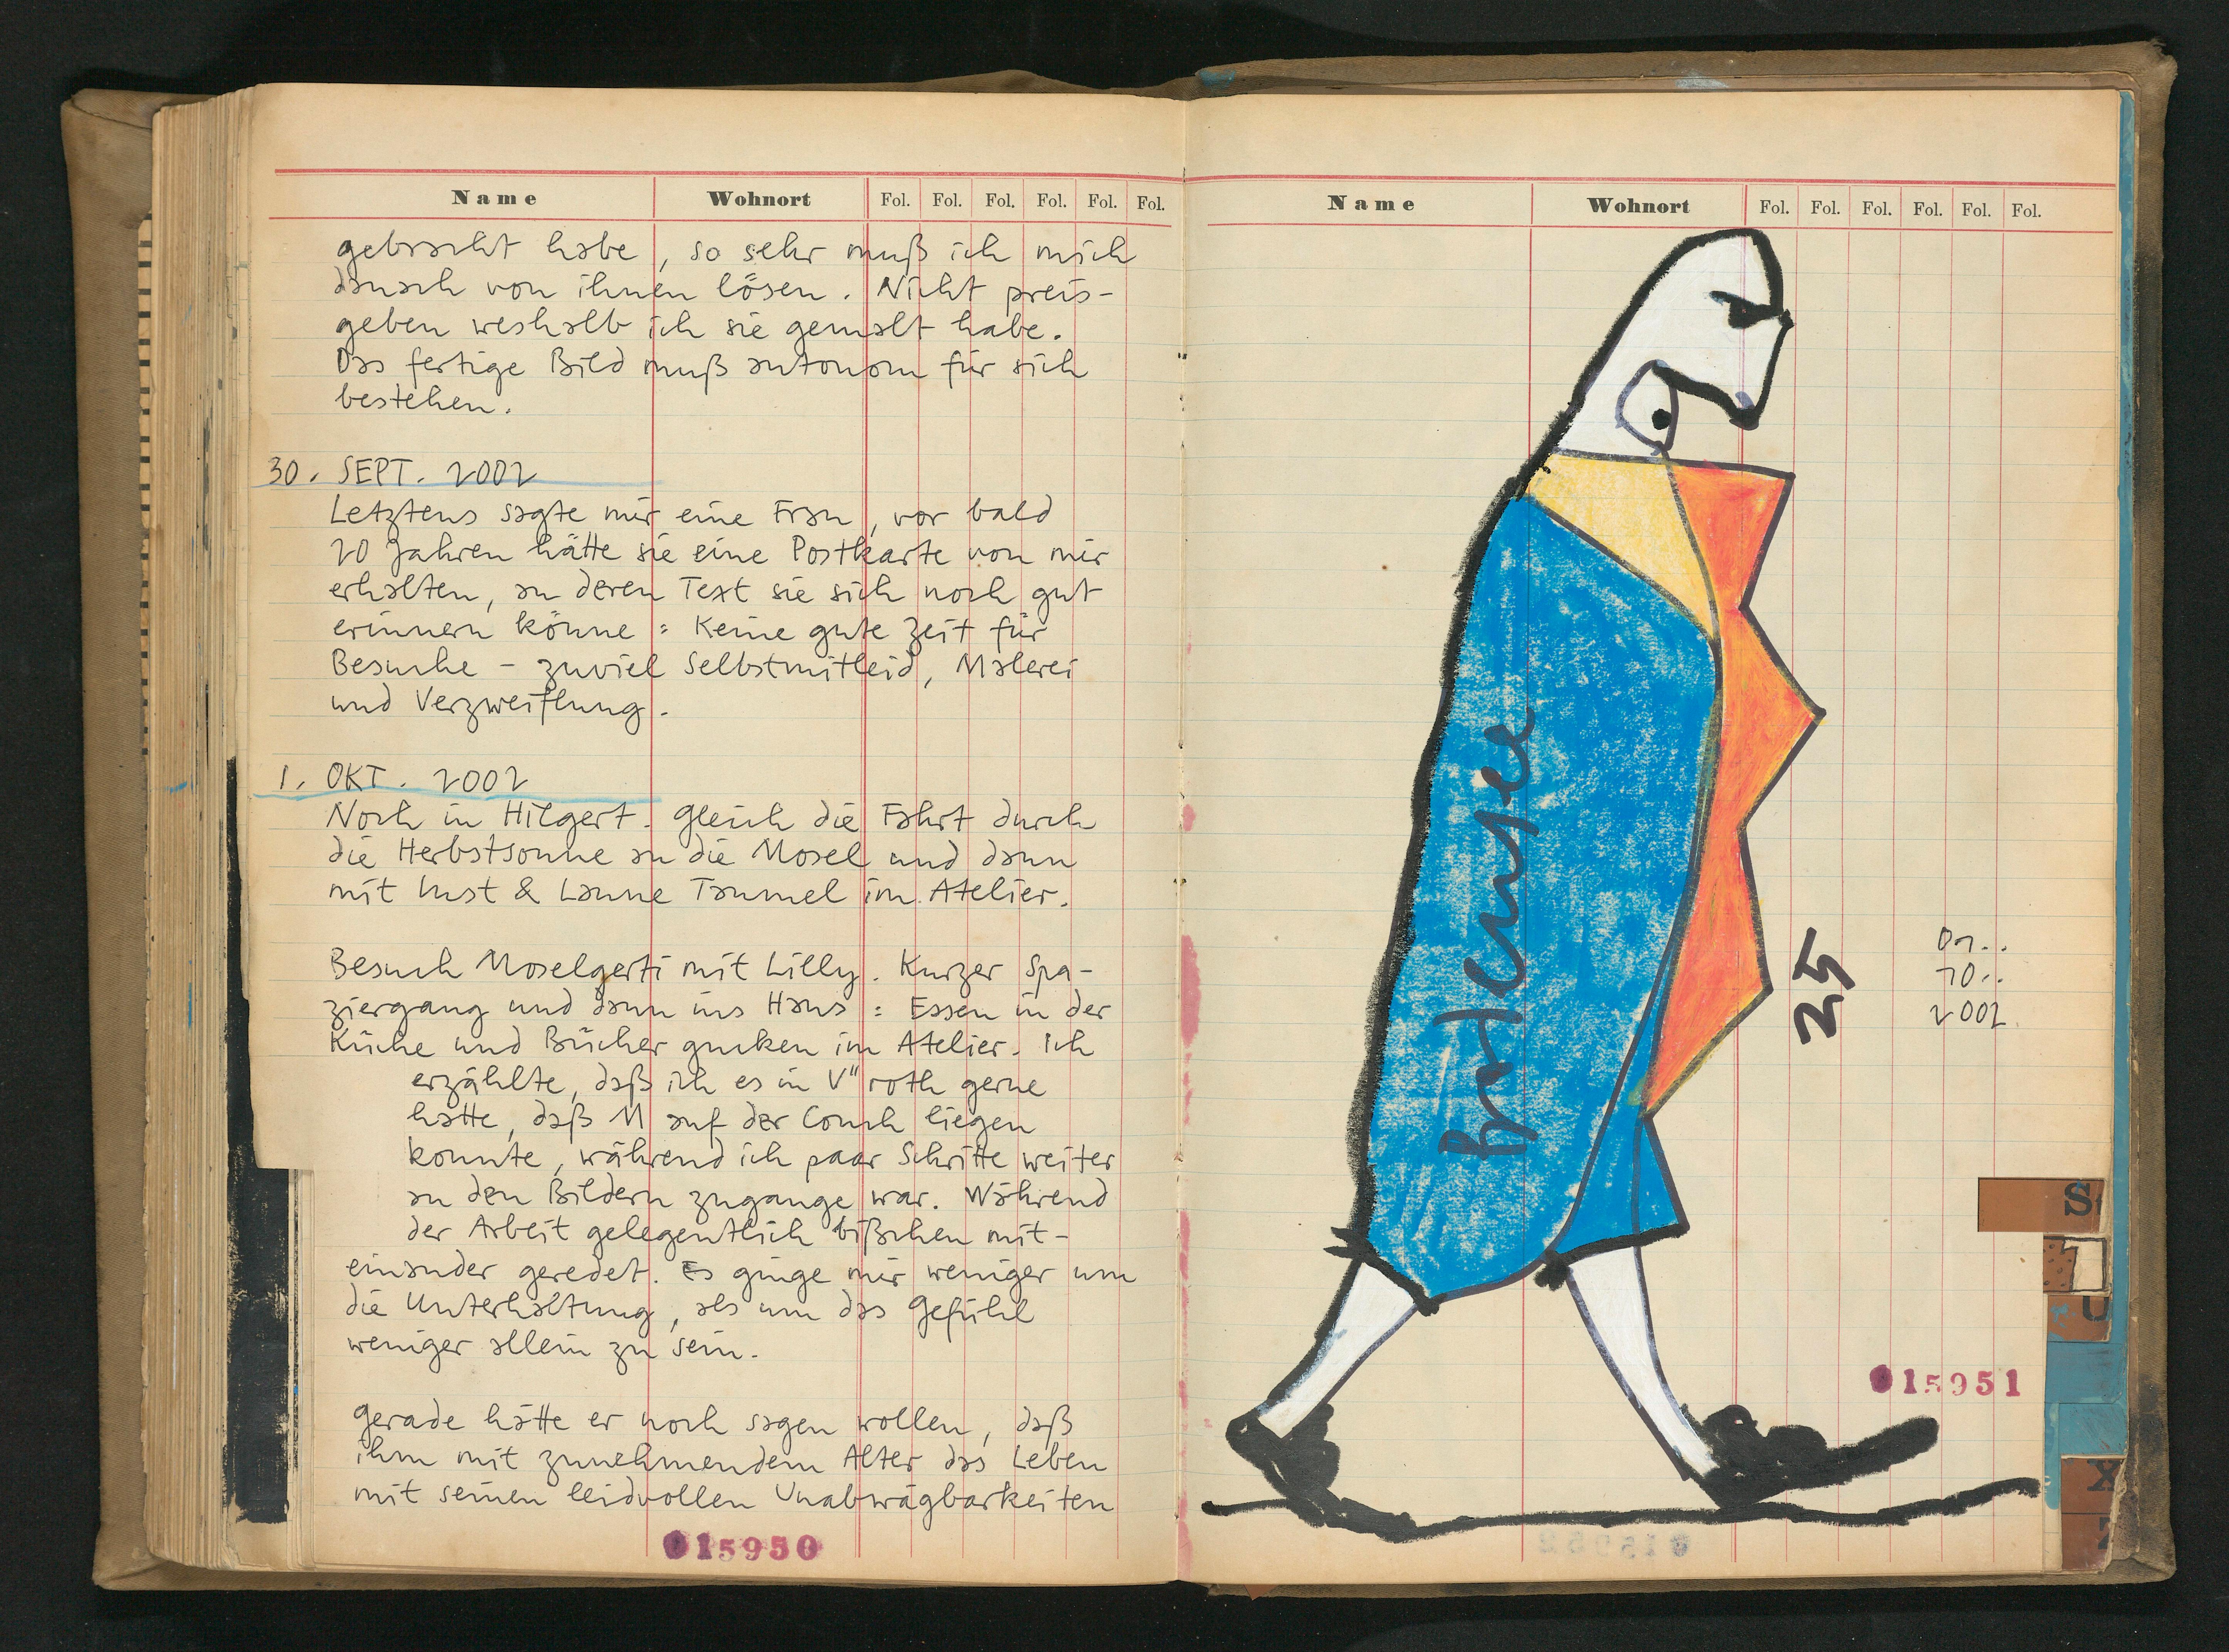 Name Wohnort Fol. Fol. Fol. Fol. Fol. Fol.
gebracht habe, so sehr muß ich mich
danach von ihnen lösen. Nicht preis-
geben weshalb ich sie gemalt habe.
Das fertige Bild muß autonom für sich
bestehen.
30. SEPT. 2002
Letztens sagte mir eine Frau, vor bald
20 Jahren hätte sie eine Postkarte von mir
erhalten, an deren Text sie sich noch gut
erinnern könne: Keine gute Zeit für
Besuche - zuviel Selbstmitleid, Malerei
und Verzweiflung.
1. OKT. 2002
Noch in Hilgert. Gleich die Fahrt durch
die Herbstsonne an die Mosel und dann
mit Lust & Laune Taumel im Atelier.
Besuch Moselgerti mit Lilly. Kurzer Spa-
ziergang und dann ins Haus: Essen in der
Küche und Bücher gucken im Atelier. Ich
erzählte, daß ich es in V"roth gerne
hatte, daß M auf der Couch liegen
konnte, während ich paar Schritte weiter
an den Bildern zugange war. Während
der Arbeit gelegentlich bißchen mit-
einander geredet. Es ginge mir weniger um
die Unterhaltung, als um das Gefühl
weniger allein zu sein.
Gerade hätte er noch sagen wollen, daß
ihm mit zunehmendem Alter das Leben
mit seinen leidvollen Unabwägbarkeiten
015950
Name Wohnort Fol. Fol. Fol. Fol. Fol. Fol.
25
01..
10..
2002.
S
U
X
015951